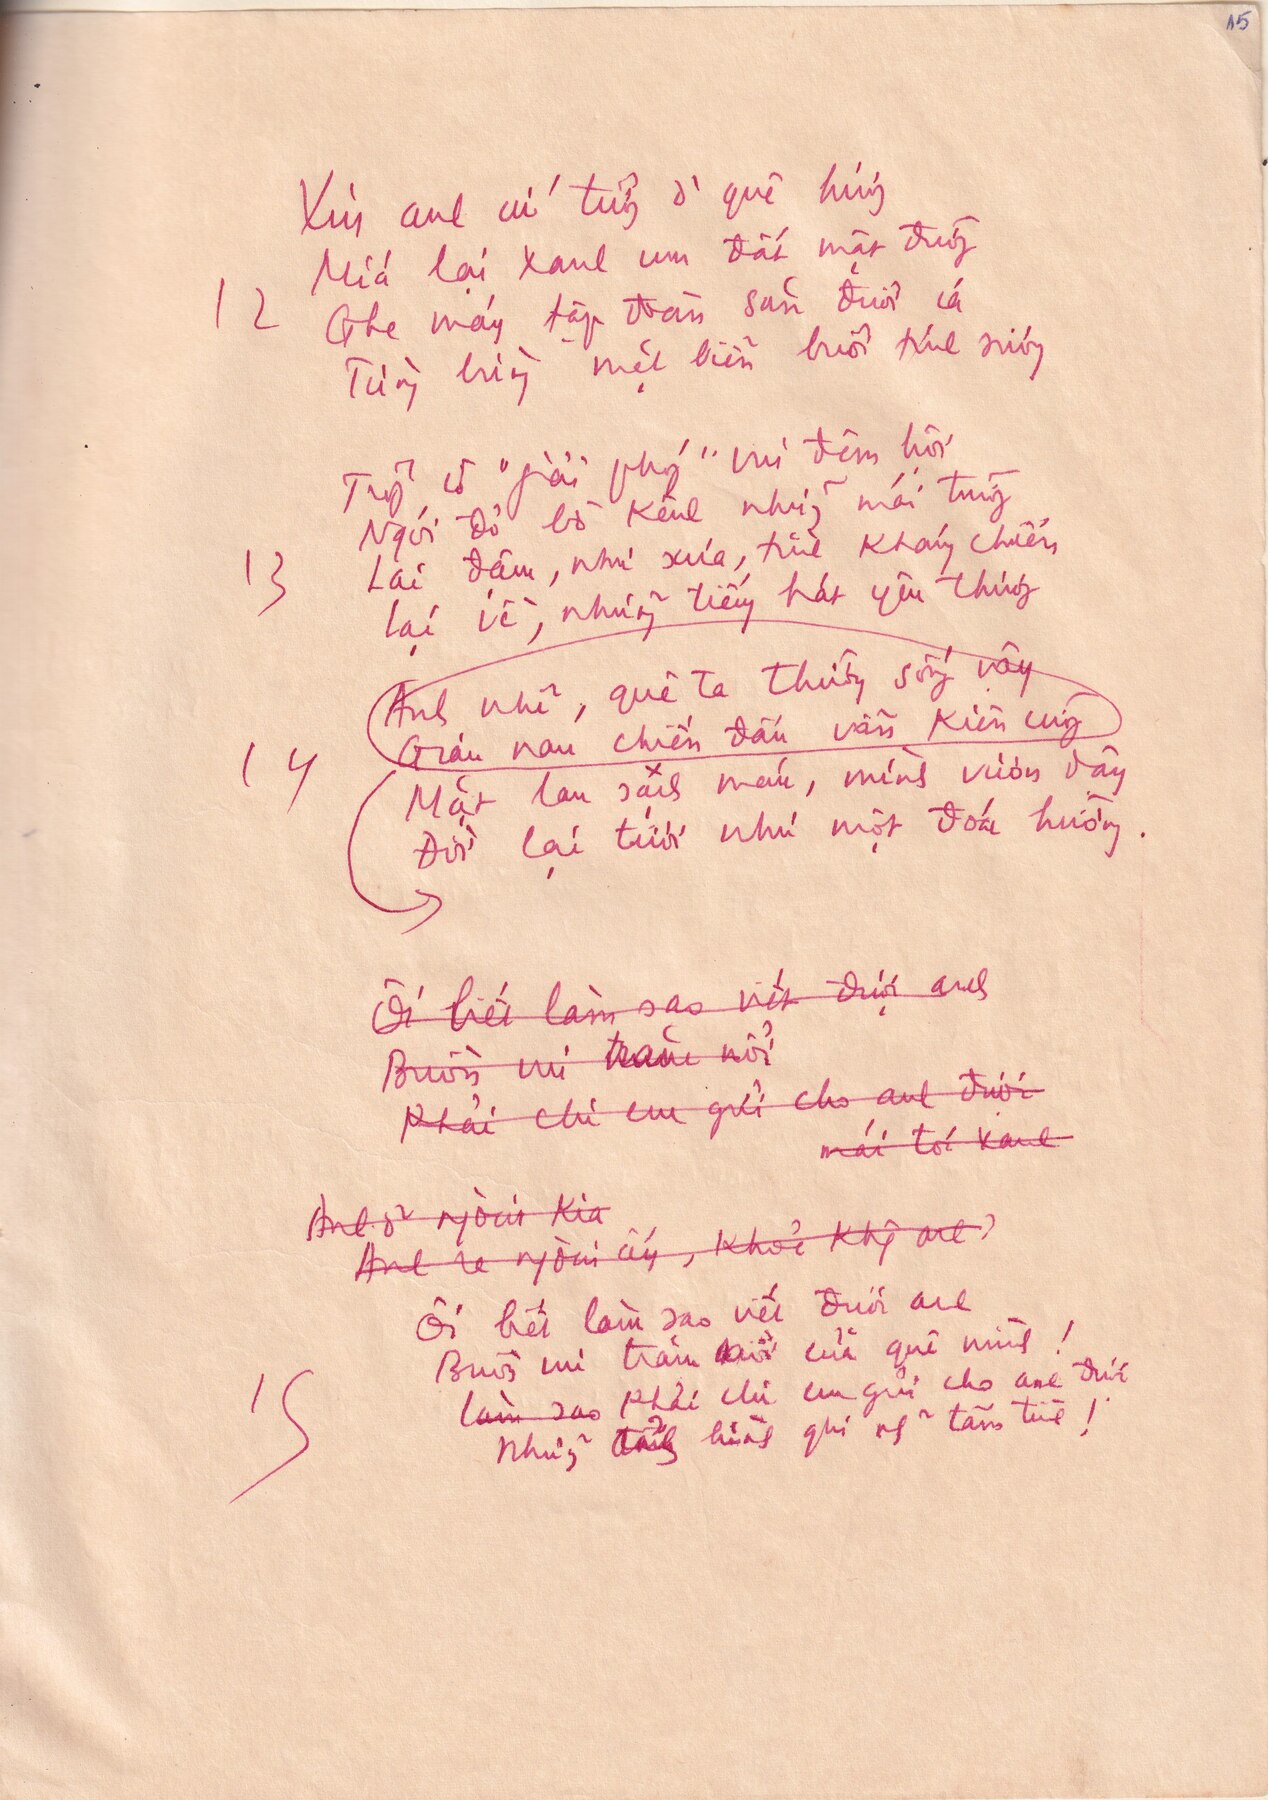 15
Xin anh cứ tưởng ở quê hương
Mía lại xanh um đất mật đường
12
Ghe máy tập đoàn săn đuổi cá
Tưng bừng mặt biển buổi tinh sương
Trụ cờ "giải phóng" vui đêm hội
Ngói đỏ bờ kênh những mái trường
13
Lại đậm, như xưa, tình kháng chiến
Lại về, những tiếng hát yêu thương
Anh nhỉ, quê ta thường sống vậy
Gian nan chiến đấu vẫn kiên cường
14
Mặt lau sạch máu, mình vươn dậy
Đời lại tươi như một đoá hường.
Ôi biết làm sao viết được anh
Buồn vui tràn nổi
Phải chi em gửi cho anh được
mái tóc xanh
Anh ở ngoài kia
Anh ra ngoài ấy, khoẻ không anh?
Ôi biết làm sao viết được anh
Buồn vui trăm nỗi của quê mình!
15
làm sao Phải chi em gửi cho anh được
Những hình ghi